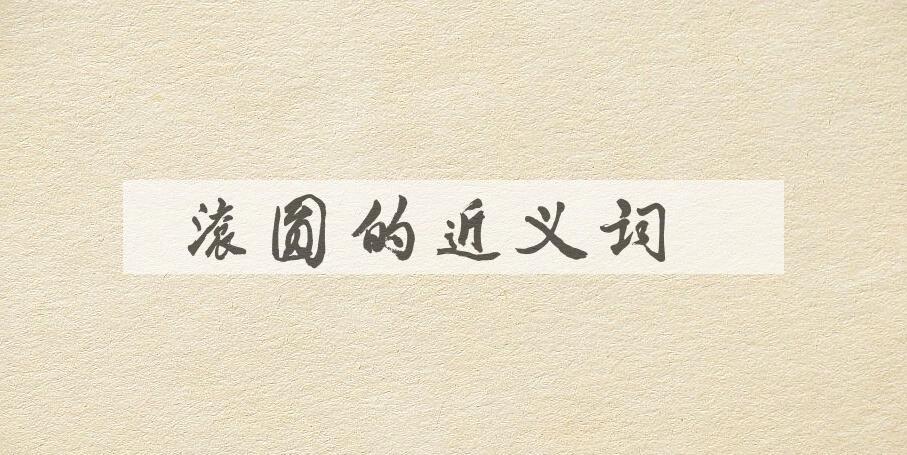 滚圆的近义词